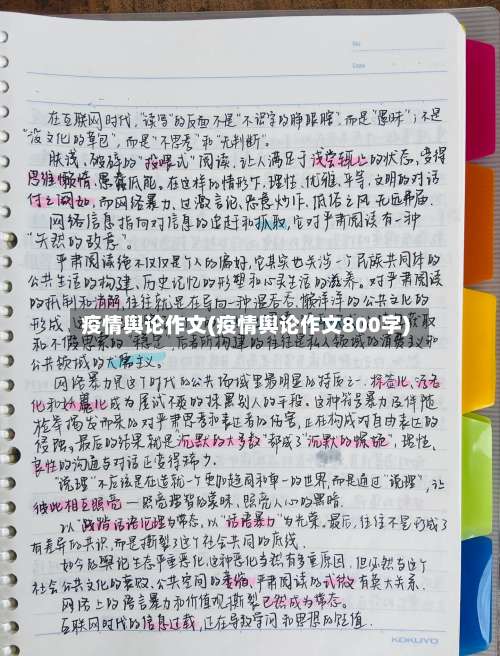 No.
Date
在互联网时代,"读写"的反面不是"不识字的睁眼瞎",而是"愚昧";不是
"没文化的草包",而是"不思考"和"无判断"。
肤浅、破碎的"投喂式"阅读,让人满足于浅尝辄止的状态,变得
思维懒惰、思索低能。在这样的情形下,理性、优雅、平等、文明的对话
付之阙如,而网络暴力、过激言论、恶意炒作、低俗之风无远弗届。
网络信息指向对信息的追赶和抓取,它对严肃阅读有一种
"天然的敌意"。
严肃阅读绝不仅仅是个人的偏好,它其实也关涉一个民族共同体的
公共生活的构建、历史记忆的形塑和心灵生活的滋养。对严肃阅读
的抵制和消解,往往就是在导向一种混吞吞、懒洋洋的公共文化的
形成,
疫情舆论作文(疫情舆论作文800字)
和不假思索的"稳定",后者所构建的往往是私人领域的消费主义和
公共领域的犬儒主义。
网络暴力是这个时代的公共场域里最明显的特质之一,标签化、污名
化和妖魔化成为屡试不爽的抹黑别人的手段。这种符号暴力及伴随
检举揭发而来的对严肃思考和表达者的伤害,正在构成对自由表达的
侵蚀。最后的结果就是"沉默的大多数"都成了"沉默的螺旋",理性、
良性的沟通与对话正变得稀少。
"说理"不应该是在造就一个更加趋同和单一的世界,而是通过"说理",让
彼此相互照亮——照亮理智的蒙昧,照亮人心的黑暗。
以"战狼话语伦理"为常态,以"语言暴力"为光荣,最后,往往不是形成了
有差异的共识,而是撕裂了这个社会共同的底线。
如今的舆论生态严重恶化,这种恶化当然有多重原因,但必然与这个
社会公共文化的衰败、公共空间的萎缩、严肃阅读的式微有莫大关系。
网络上的语言暴力和价值观撕裂已然成为常态。
互联网时代的信息过载,正在导致学问和思想的贬值.
KOKUYO